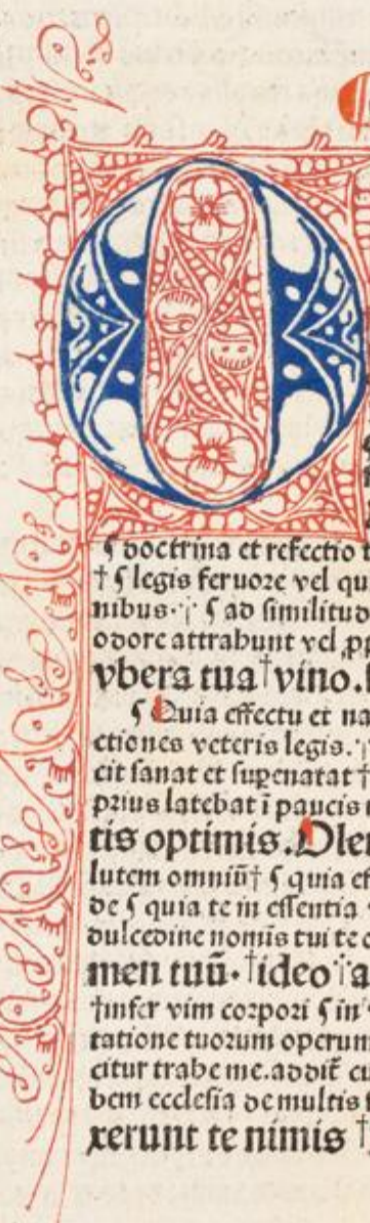 O
ꝯ doctrina et refectio t
† ꝯ legis feruore vel qu
nibus· ꝯ ad similitud
odore attrahunt vel
vbera tua†vino.
ꝯ Quia effectu et na
ctiones veteris legis.
cit sanat et supenatat †
prius latebat ī paucis
tis optimis. Olen
lutem omniū† ꝯ quia ef
de ꝯ quia te in essentia
dulcedine nomīs tui te
men tuū·†ideo a
†infer vim corpori ꝯ in
tatione tuorum operum
citur trahe me. addit
bem ecclesia de multis
xerunt te nimis †